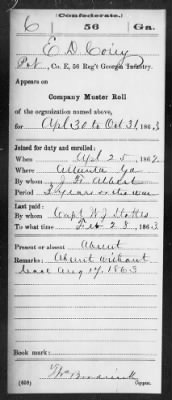 (Confederate.)
6 56 Ga.
E D
Pvt, Co. E, 56 Reg't Georgia Infantry.
Appears on
Company Muster Roll
of the organization named above,
for Apl 30 to Oct 31, 1863
Joined for duty and enrolled:
When Apl 25, 186
Where Atlanta Ga
By whom
Period 3 years or the war
Last paid:
By whom Capt W J
To what time Feb 28, 1863
Present or absent Absent
Remarks: Absent without
leave Aug 17, 1863
Book mark:
Copyist.